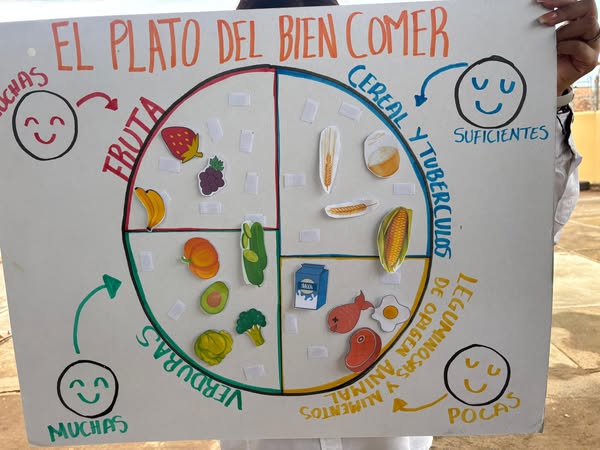 EL PLATO DEL BIEN COMER
MUCHAS
FRUTA
CEREAL Y TUBERCULOS
SUFICIENTES
VERDURAS
MUCHAS
LEGUMINOSAS Y ALIMENTOS
DE ORIGEN ANIMAL
POCAS